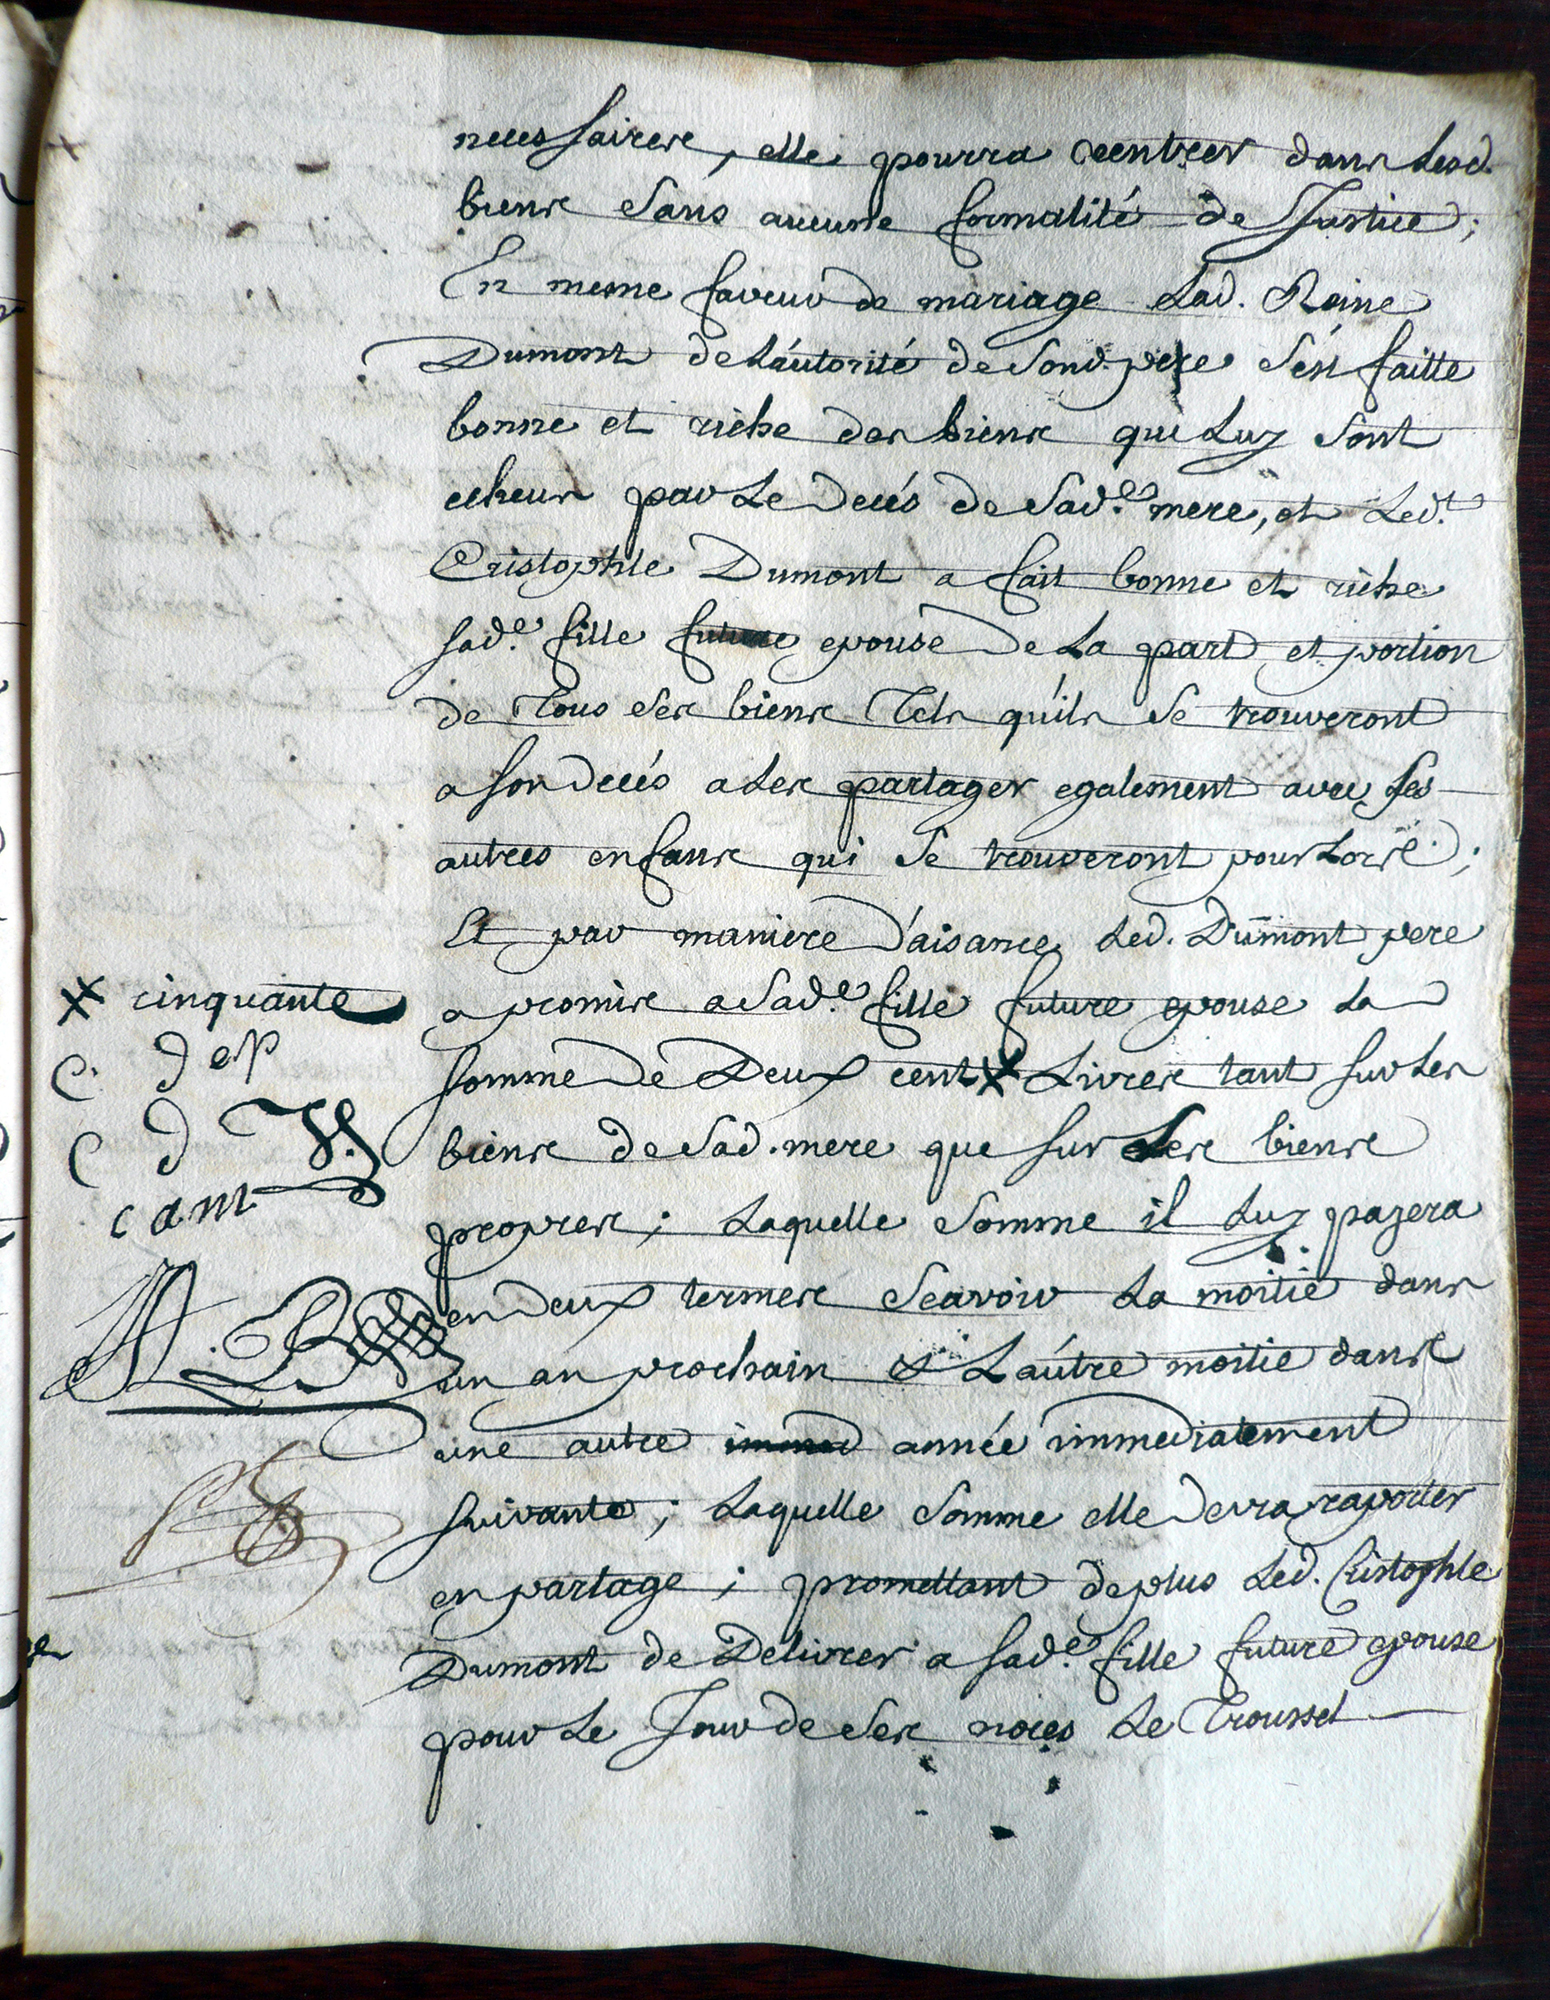 necessaires, elle pourra rentrer dans Lesd.
biens sans aucune formalité de Justice;
En meme faveur de mariage Lad. Reine
Dumont de Láutorité de Sond. pere s'est faitte
bonne et riche des biens qui Luy sont
echeus par Le decés de Sad.e mere, et Led.t
Cristophle Dumont a fait bonne et riche
sad.e fille future epouse de La part et portion
de Tous ses biens Tels qu'ils se trouveront
a son decés a Les partager egalement avec ses
autres enfans qui se trouveront pour Lors;
Et par maniere d'aisance Led. Dumont pere
a promis a Sad.e fille future epouse La
somme de Deux cent X Livres tant sur Les
biens de Sad. mere que sur Ses biens
propres; Laquelle Somme il Luy payera
en Deux termes Scavoir La moitié dans
un an prochain & Láutre moitié dans
une autre année immediatement
suivante; Laquelle Somme elle devra raporter
en partage; promettant de plus Led. Cristophle
Dumont de Delivrer a sad.e fille future epouse
pour Le Jour de Ses noces Le Troussel
X cinquante
C. d
C d